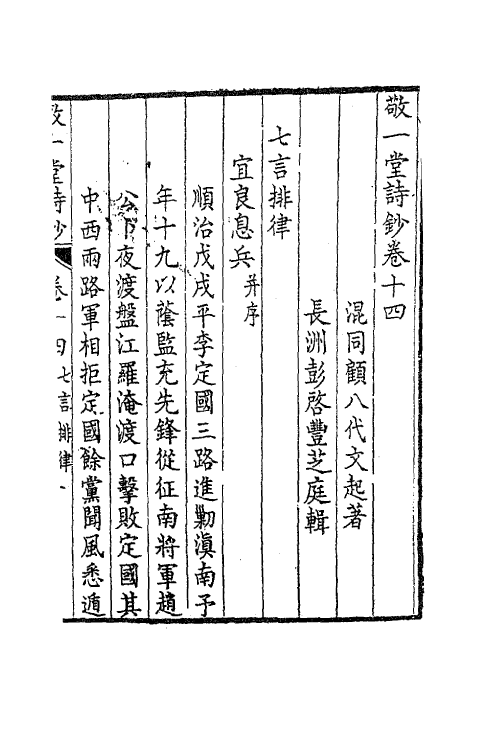 敬一堂詩鈔卷十四
混同顧八代文起著
長洲彭啓豐芝庭輯
七言排律
宜良息兵并序
順治戊戌平李定國三路進勦滇南予
年十九以蔭監充先鋒從征南將軍趙
公下夜渡盤江羅淹渡口擊敗定國其
中西兩路軍相拒定國餘黨聞風悉遁
敬一堂詩鈔 卷十四 七言排律 一